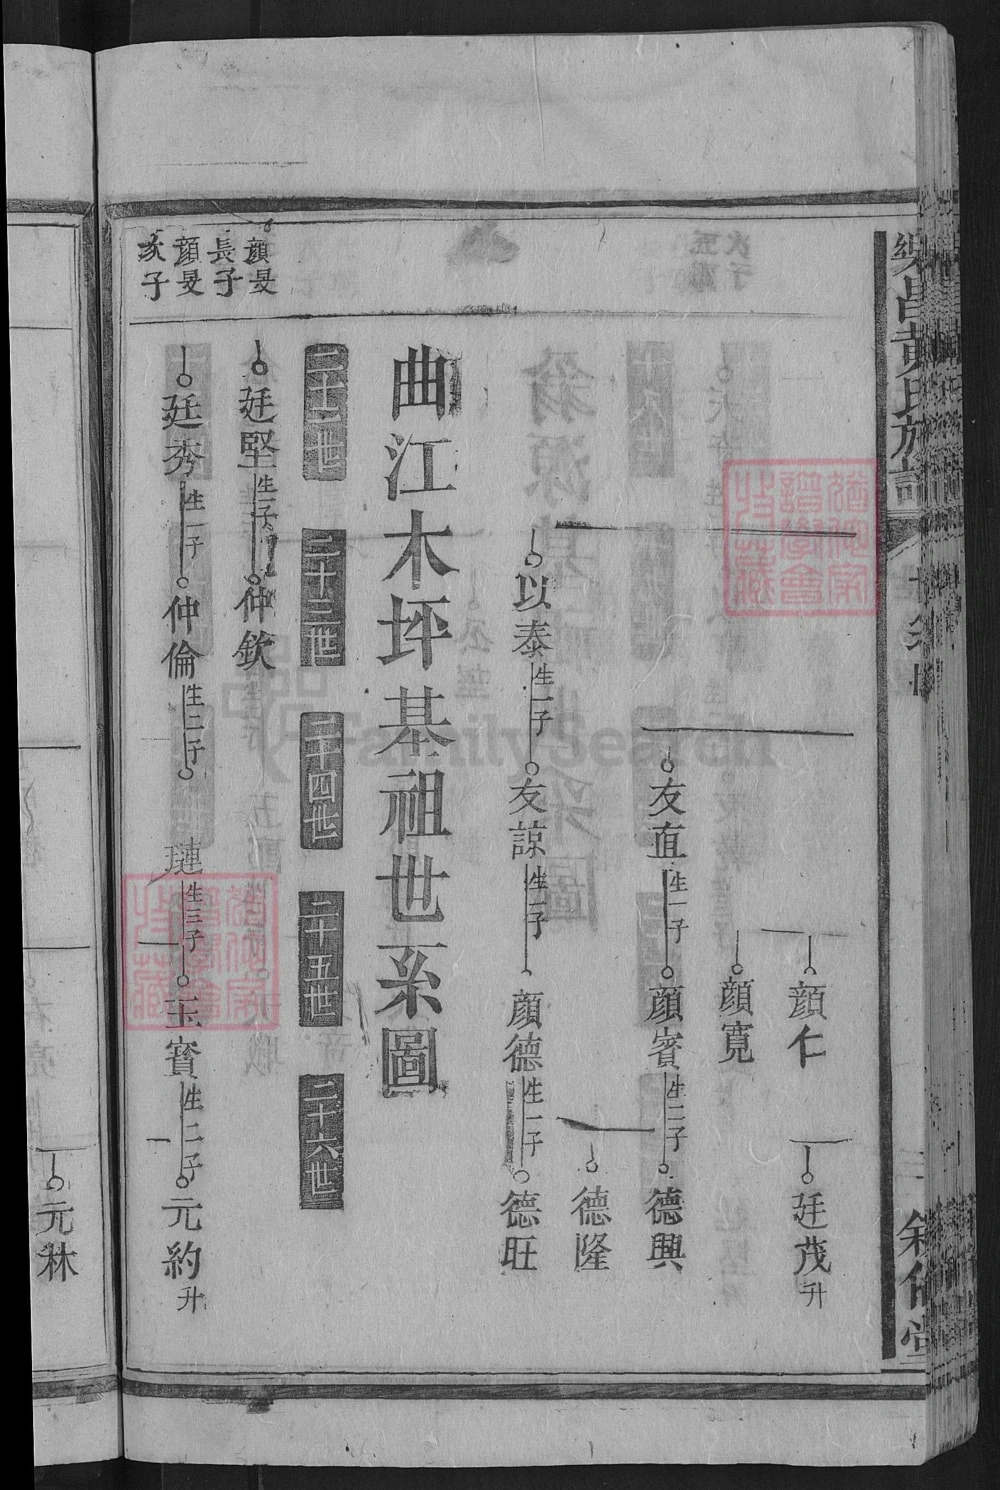 顔仁
廷茂升
顔寛
友直生一子
顔賓生二子
德興
德隆
以泰生一子
友諒生一子
顔德生一子
德旺
曲江木坪基祖世系圖
二十二世
二十三世
二十四世
二十五世
二十六世
顔旻長子
廷堅生一子
仲欽
顔旻次子
廷秀生一子
仲倫生二子
璉生三子
玉賓生二子
元約升
元林
FamilySearch